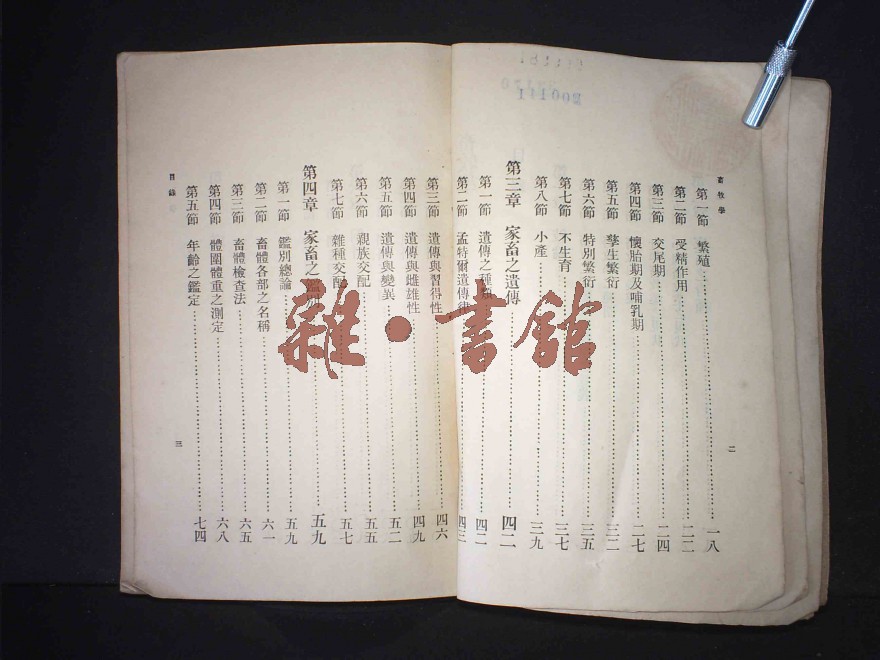 畜牧學
第一節 繁殖 一八
第二節 受精作用 二二
第三節 交尾期 二四
第四節 懷胎期及哺乳期 二七
第五節 孿生繁衍 三二
第六節 特別繁衍 三五
第七節 不生育 三七
第八節 小產 三九
第三章 家畜之遺傳 四二
第一節 遺傳之種類 四二
第二節 孟特爾遺傳律 四三
二
第三節 遺傳與習得性 四六
第四節 遺傳與雌雄性 四九
第五節 遺傳與變異 五二
第六節 親族交配 五五
第七節 雜種交配 五七
第四章 家畜之鑑別 五九
第一節 鑑別總論 五九
第二節 畜體各部之名稱 六一
第三節 畜體檢查法 六五
第四節 體圍體重之測定 六八
第五節 年齡之鑑定 七四
目錄
三
雜·書館